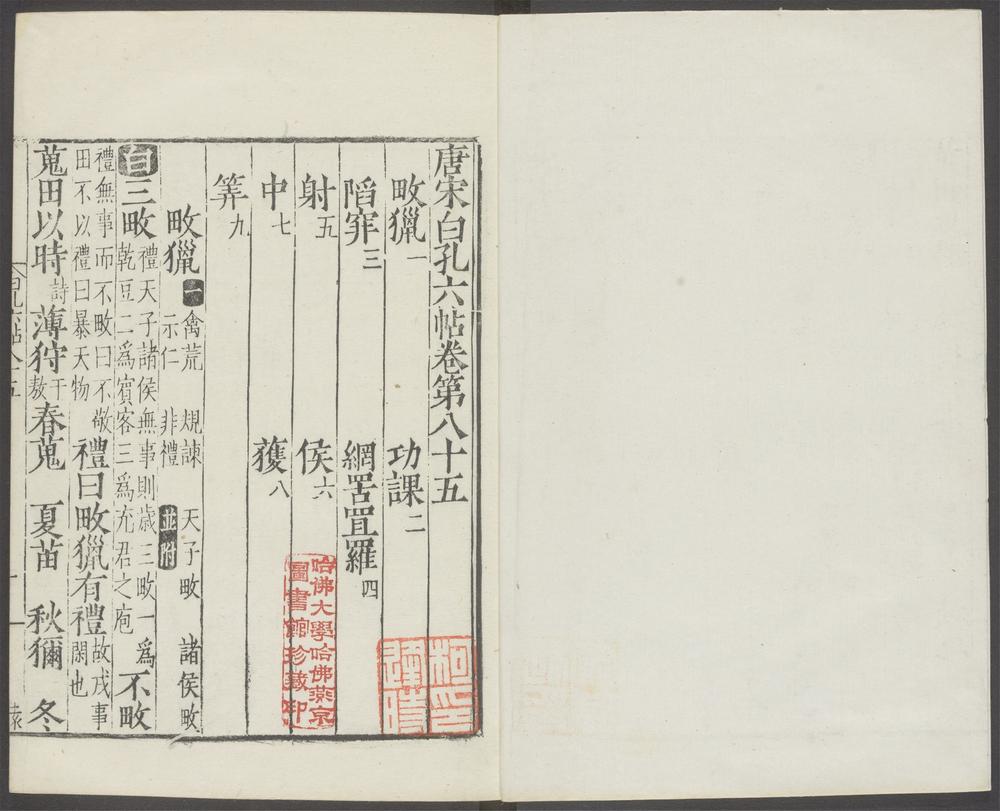 唐宋白孔六帖卷第八十五
畋獵一 功課二
陷穽三 網罟罝羅四
射五 侯六
中七 獲八
筭九
畋獵一 禽荒 規諫 天子畋 諸侯畋
示仁 非禮 並附
白三畋 禮天子諸侯無事則歲三畋一爲
乾豆二爲賓客三爲充君之庖 不畋
禮無事而不畋曰不敬
田不以禮曰暴天物 禮曰畋獵有禮 故戎事
閑也
蒐田以時 詩 薄狩 于
敖 春蒐 夏苗 秋獮 冬
哈佛大學哈佛燕京
圖書館珍藏印